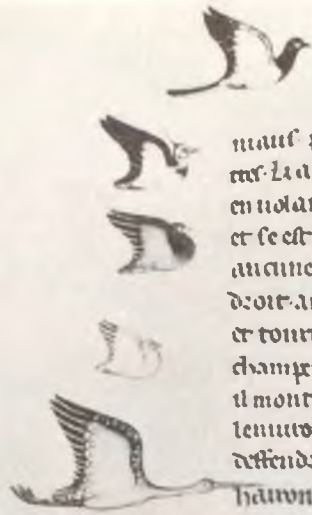 mauſ
tteſ · La a
en uolan
et ſe eſt
aucune
droit · a
et tour
champe
il mont
lenuiro
deffende
hairon